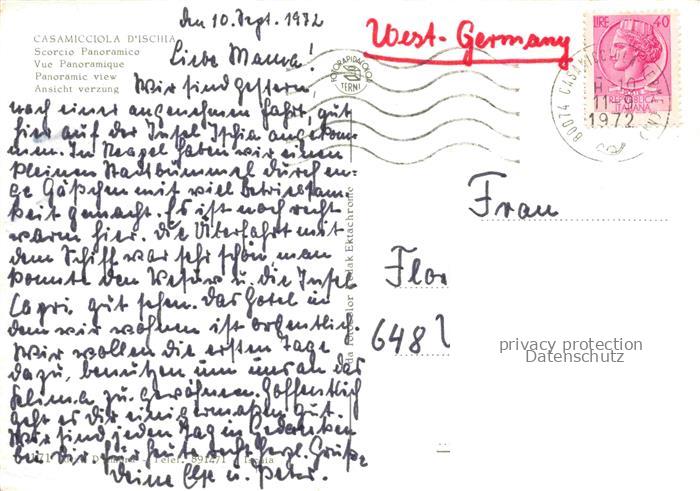 CASAMICCIOLA D'ISCHIA
Scorcio Panoramico
Vue Panoramique
Panoramic view
Ansicht verzung
den 10. Sept. 1972
Liebe Mama!
Wir sind gestern,
nach einer angenehmen Fahrt, gut
hier auf der Insel Ischia angekom-
men. In Neapel haben wir einen
kleinen Stadtbummel durch en-
ge Gäßchen mit viel Betriebsam-
keit gemacht. Es ist noch recht
warm hier. Die Überfahrt mit
dem Schiff war sehr schön man
konnte den Vesuv u. die Insel
Capri gut sehen. Das Hotel in
dem wir wohnen ist ordentlich.
Wir wollen die ersten Tage
dazu benutzen um uns an das
Klima zu gewöhnen. Hoffentlich
geht es dir einigermaßen gut.
Wir sind jeden Tag in Gedanken
bei dir. Für heute recht herzl. Grüße
Deine Else u. Peter.
FOTORAPIDACOLOR
TERNI
Kodak Ektachrome
West-Germany
LIRE 40
REPVBBLICA
ITALIANA
80074 CASAMICCIOLA
11-9
1972
Frau
Flor
648
privacy protection
Datenschutz
Telef. 891471 - Ischia